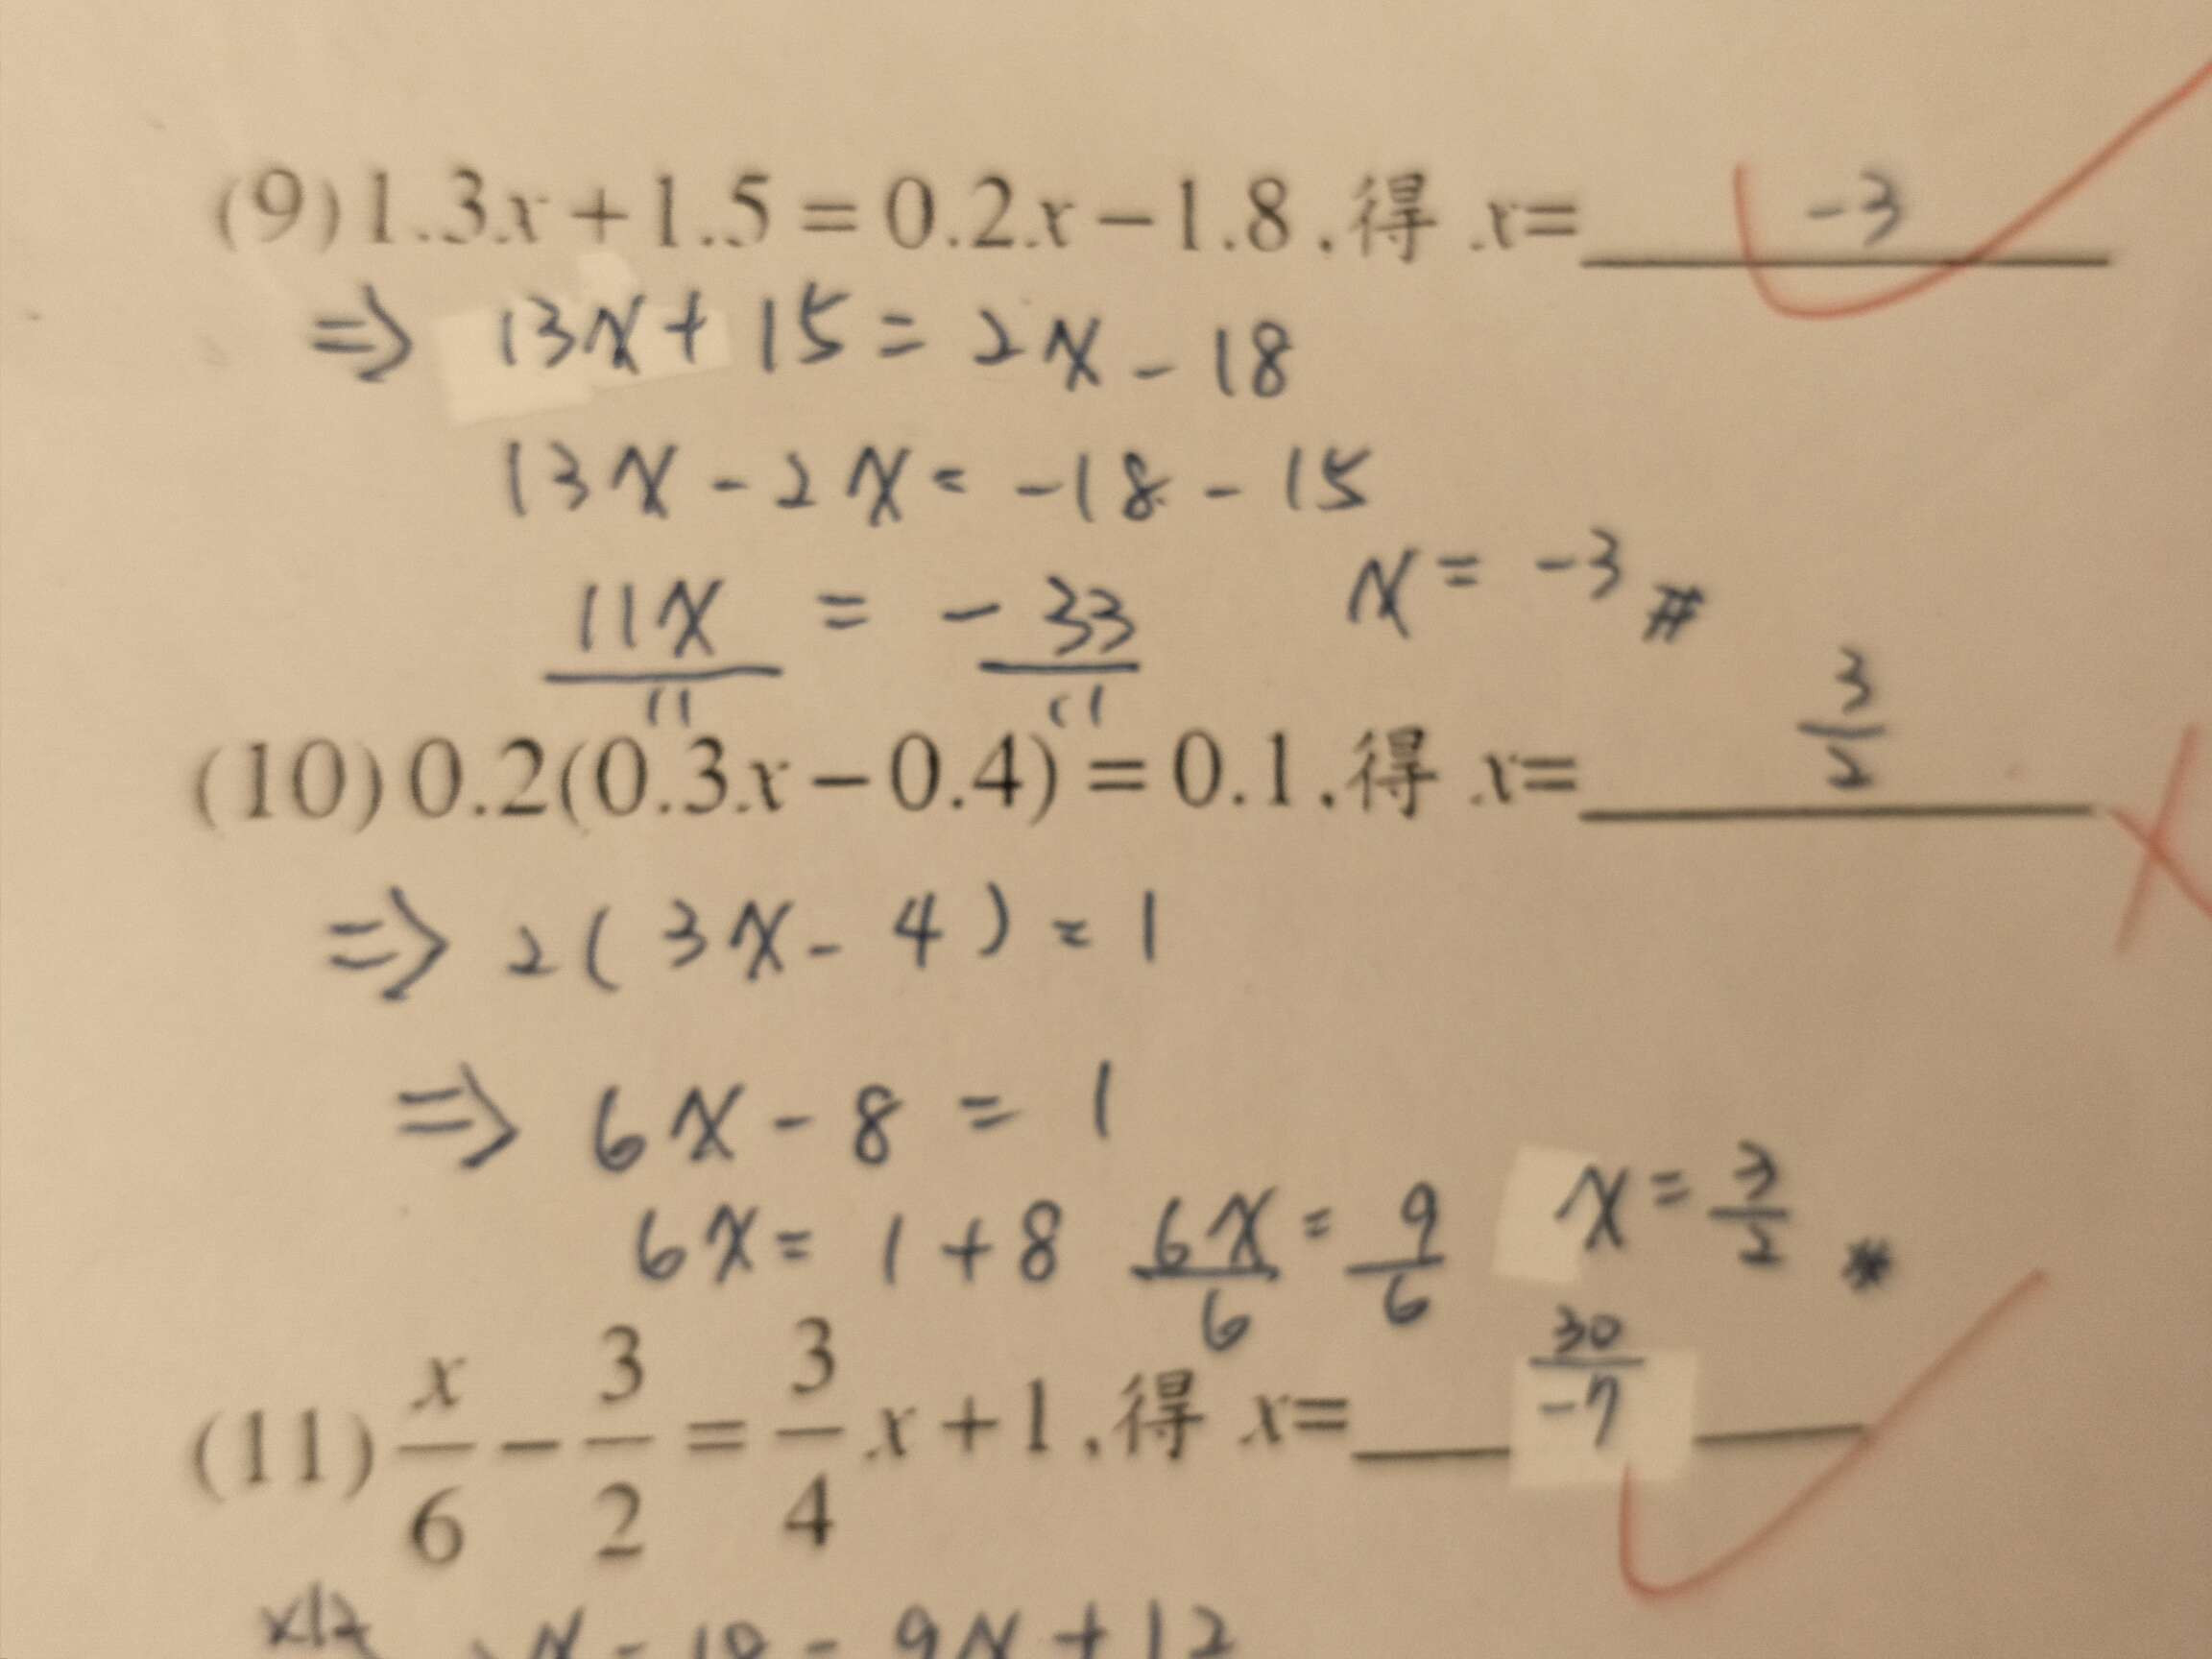 (9) 1.3x+1.5=0.2x-1.8,得 x= -3
⇒ 13x+15=2x-18
13x-2x=-18-15
11x/11 = -33/11  x=-3 #
(10) 0.2(0.3x-0.4)=0.1,得 x= 3/2
⇒ 2(3x-4)=1
⇒ 6x-8=1
6x=1+8  6x/6=9/6  x=3/2 #
(11) x/6-3/2=3/4x+1,得 x= 30/-7
x12 x-18=9x+12